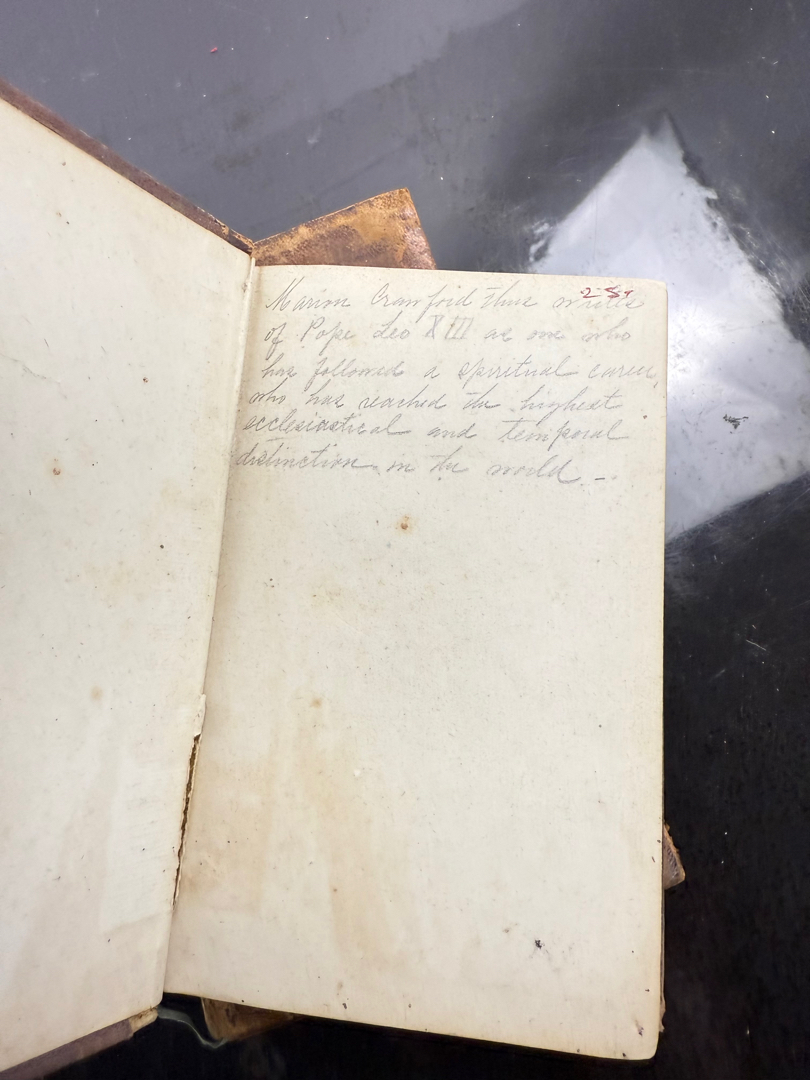 Marion Crawford thus writes
of Pope Leo XIII as one who
has followed a spiritual career,
who has reached the highest
ecclesiastical and temporal
distinction in the world –